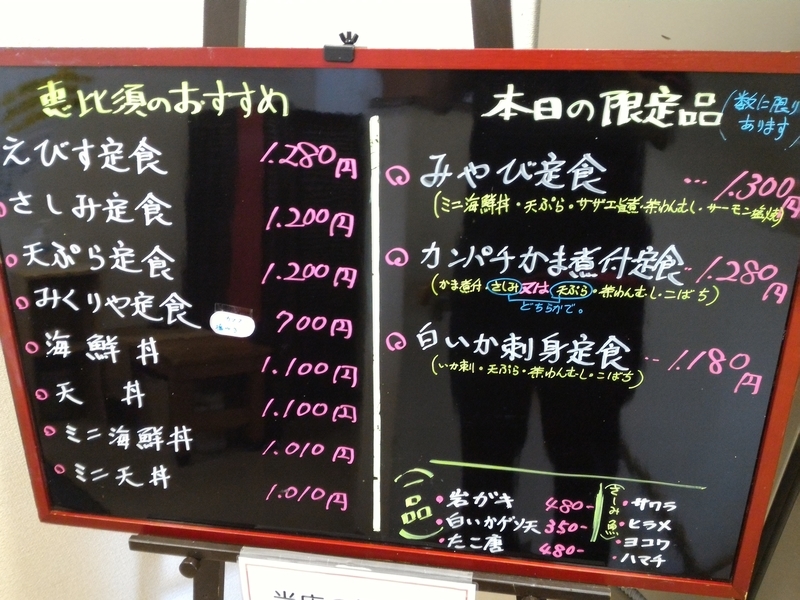 恵比須のおすすめ
えびす定食 1.280円
さしみ定食 1.200円
天ぷら定食 1.200円
みくりや定食 700円
海鮮丼 1.100円
天丼 1.100円
ミニ海鮮丼 1.010円
ミニ天丼 1.010円
本日の限定品 (数に限り
あります)
みやび定食 … 1.300円
(ミニ海鮮丼・天ぷら・サザエ旨煮・茶わんむし・サーモン塩焼)
カンパチかま煮付定食 ‥ 1.280円
(かま煮付・さしみ又は天ぷら・茶わんむし・こばち)
どちらかで。
白いか刺身定食 ‥ 1.180円
(いか刺・天ぷら・茶わんむし・こばち)
(一品)
・岩ガキ 480-
・白いかゲソ天 350-
・たこ唐 480-
(さしみ魚)
・サワラ
・ヒラメ
・ヨコワ
・ハマチ